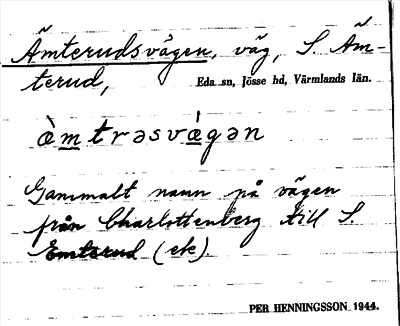 Ämterudsvägen, väg, S. Äm-
terud, Eda sn, Jösse hd, Värmlands län.
àmtrəsvágən
Gammalt namn på vägen
från Charlottenberg till S.
Emterud (ek).
PER HENNINGSSON 1944.